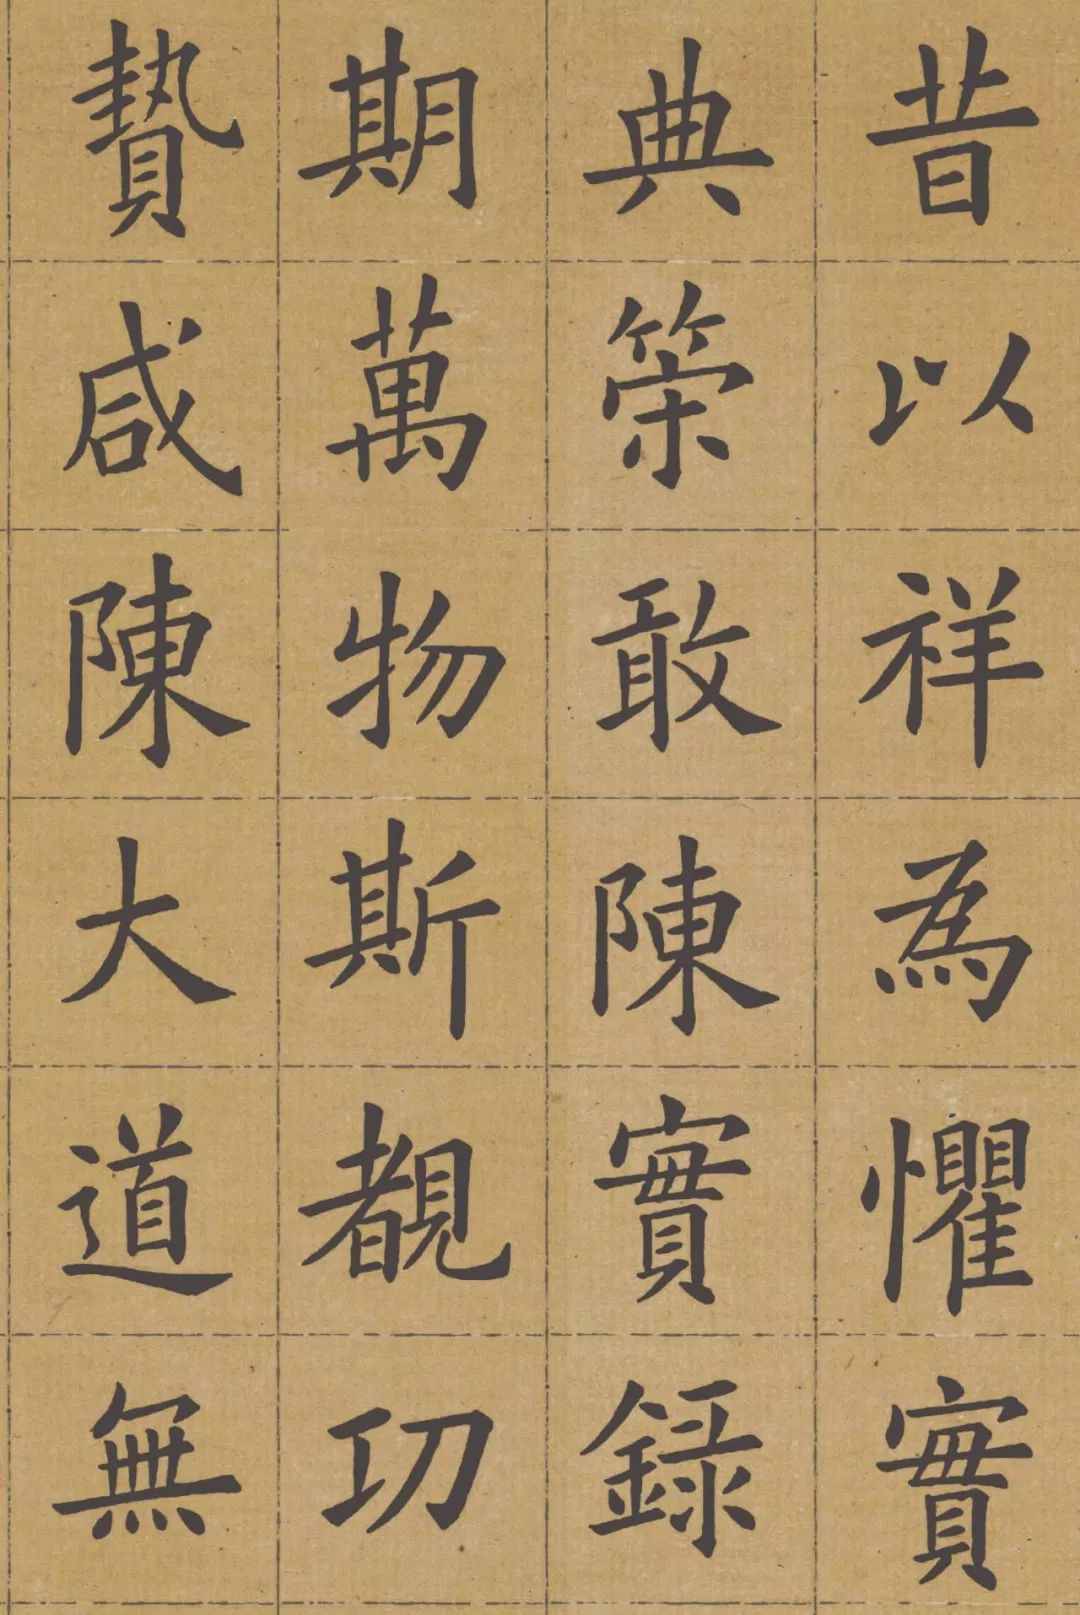 昔以祥為懼實
典䇿敢陳實錄
期萬物斯覩功
贄咸陳大道無